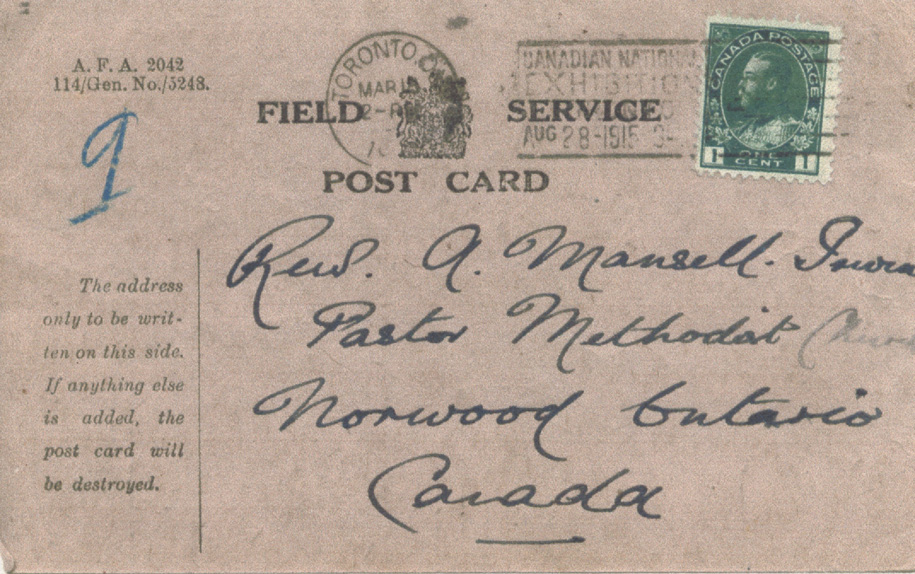 A. F. A. 2042
114/Gen. No./5248.
TORONTO.
MAR
CANADIAN NATIONAL
EXHIBITION
AUG 28-1915
CANADA POSTAGE
1 ONE 1
CENT
9
FIELD SERVICE
POST CARD
The address
only to be writ-
ten on this side.
If anything else
is added, the
post card will
be destroyed.
Rev. A. Mansell.
Pastor Methodist
Norwood Ontario
Canada